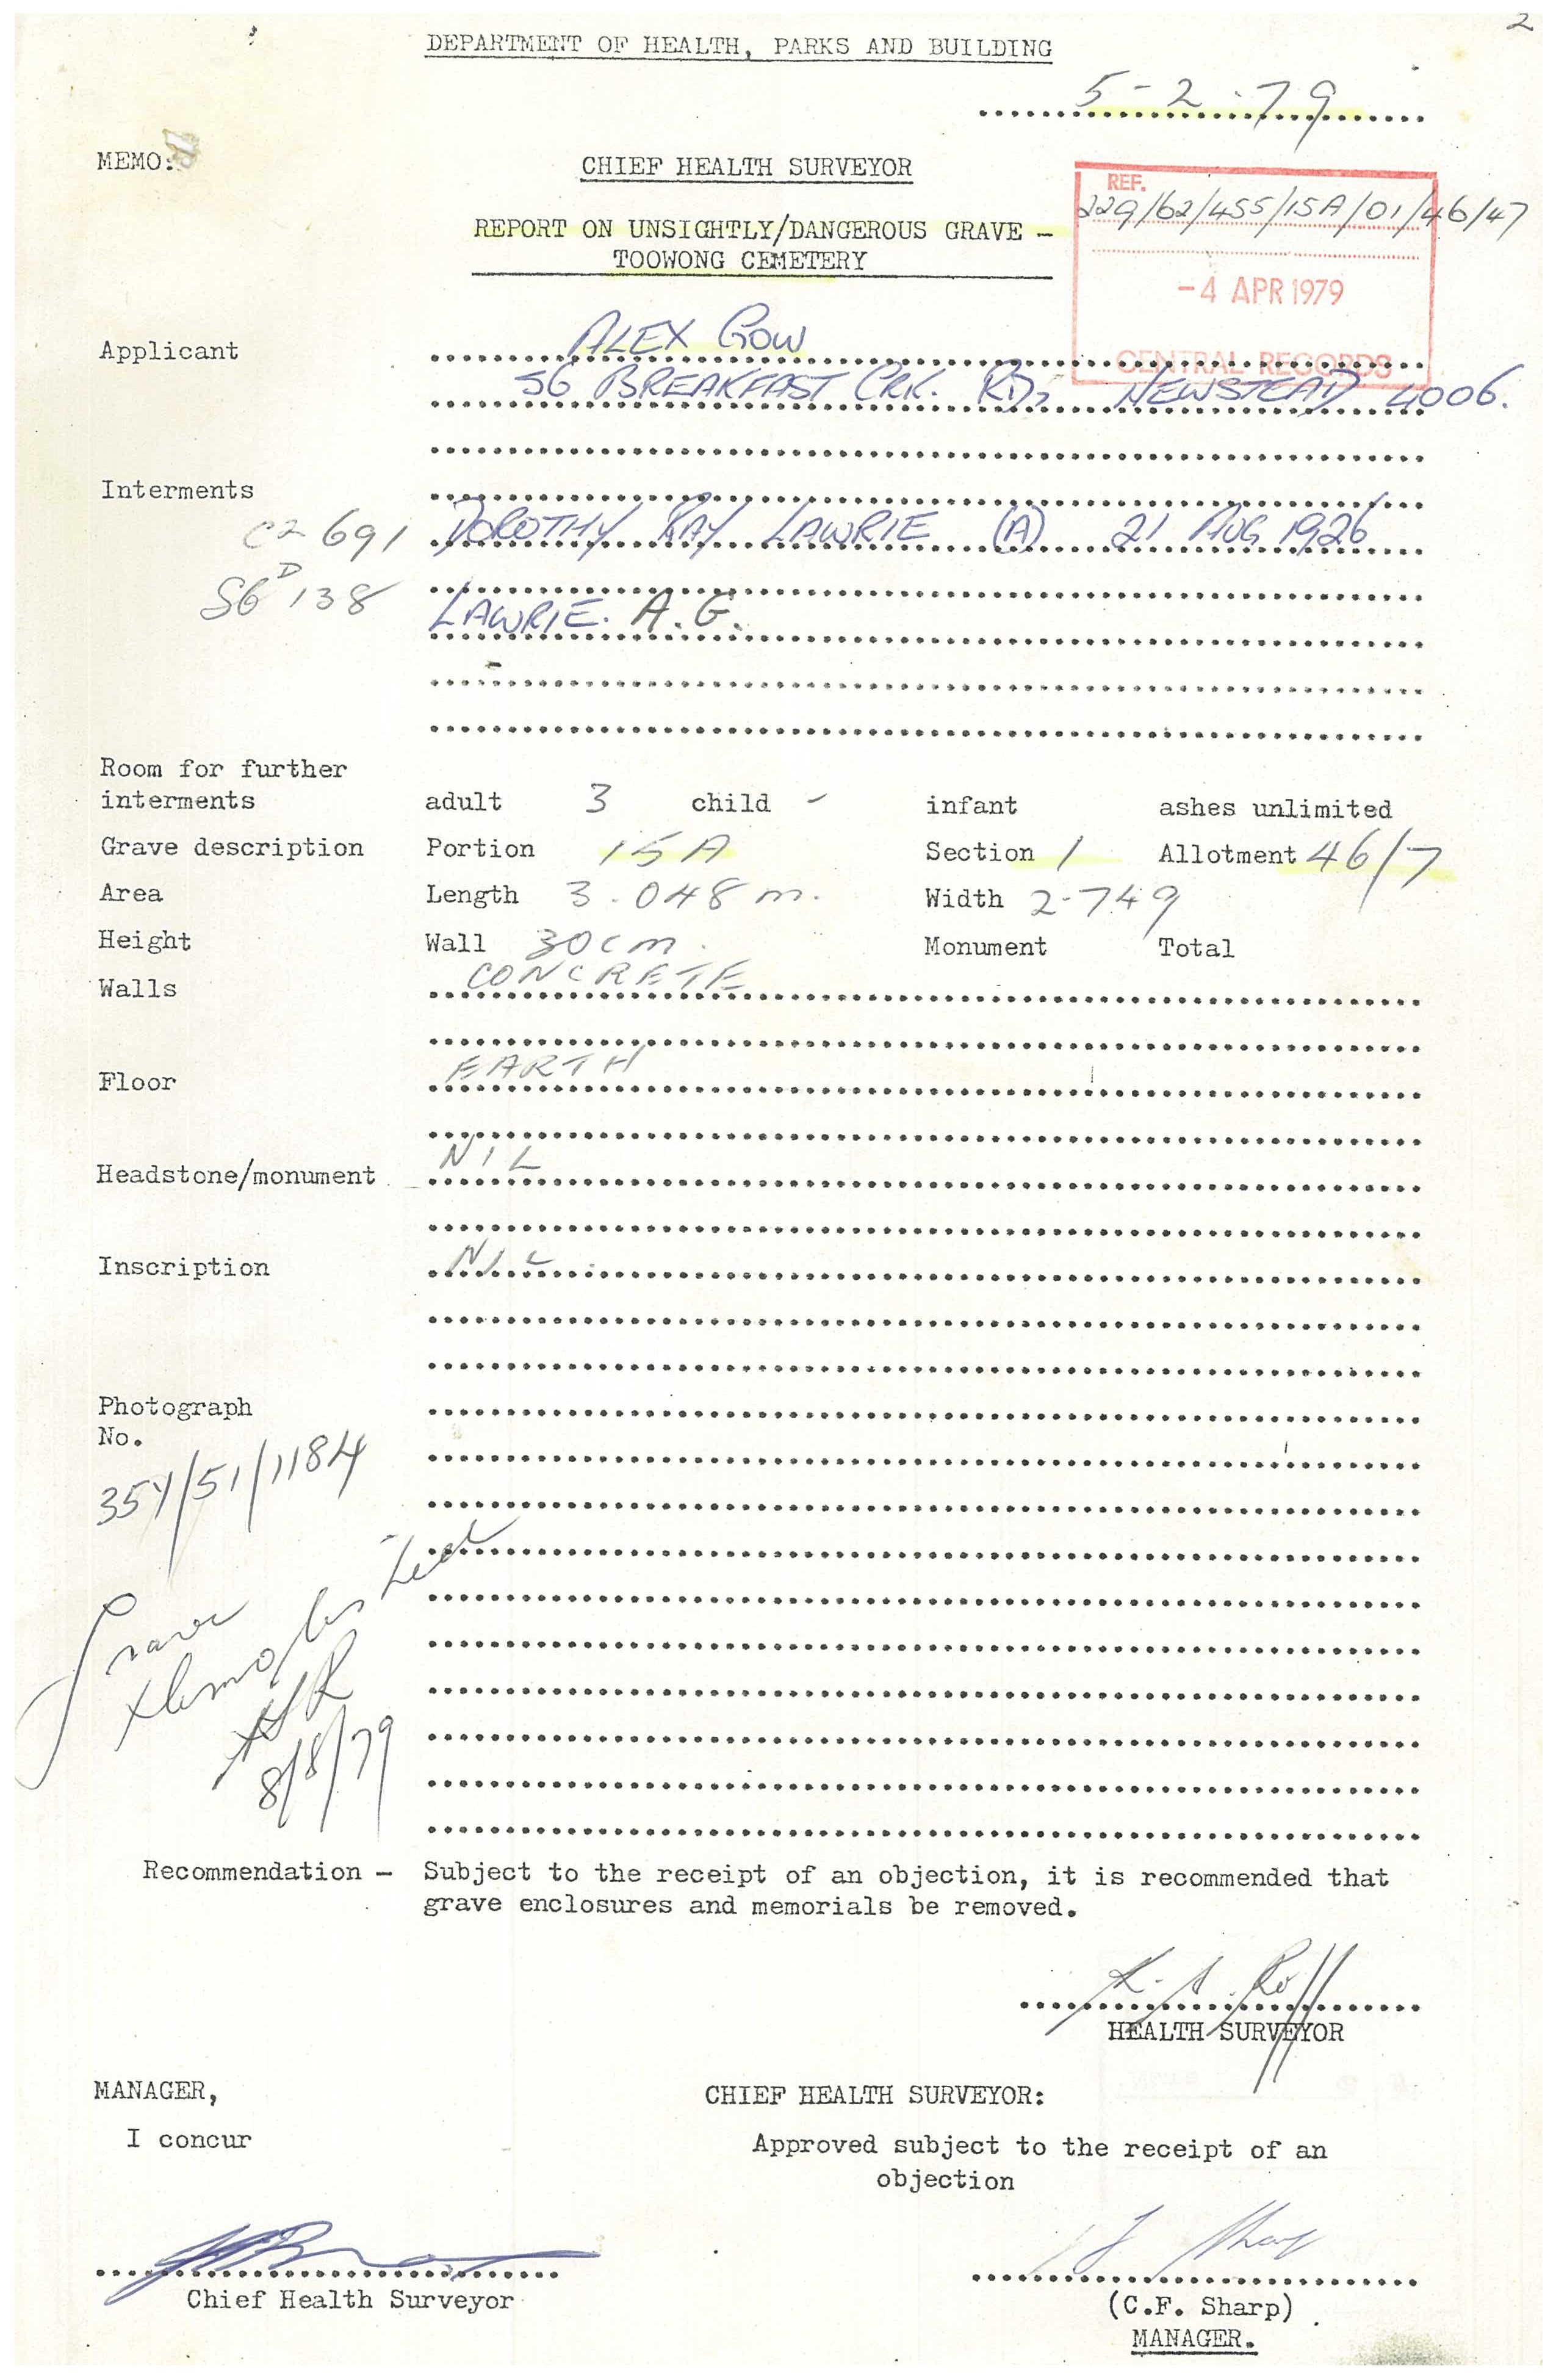 2
DEPARTMENT OF HEALTH, PARKS AND BUILDING
5-2-79
MEMO:
CHIEF HEALTH SURVEYOR
REPORT ON UNSIGHTLY/DANGEROUS GRAVE –
TOOWONG CEMETERY
REF.
229/62/455/15A/01/46/47
-4 APR 1979
CENTRAL RECORDS
Applicant ALEX GOW
56 BREAKFAST CRK. RD, NEWSTEAD 4006.
Interments
C2 691 DOROTHY RAY LAWRIE (A) 21 AUG 1926
D
S6 138 LAWRIE. A.G.
Room for further
interments adult 3 child - infant ashes unlimited
Grave description Portion 15A Section 1 Allotment 46/7
Area Length 3.048 m. Width 2.749
Height Wall 30cm. Monument Total
Walls CONCRETE
Floor EARTH
Headstone/monument NIL
Inscription NIL
Photograph
No.
354/51/1184
Grave
8/8/79
Recommendation – Subject to the receipt of an objection, it is recommended that
grave enclosures and memorials be removed.
HEALTH SURVEYOR
MANAGER,
I concur
CHIEF HEALTH SURVEYOR:
Approved subject to the receipt of an
objection
Chief Health Surveyor
(C.F. Sharp)
MANAGER.